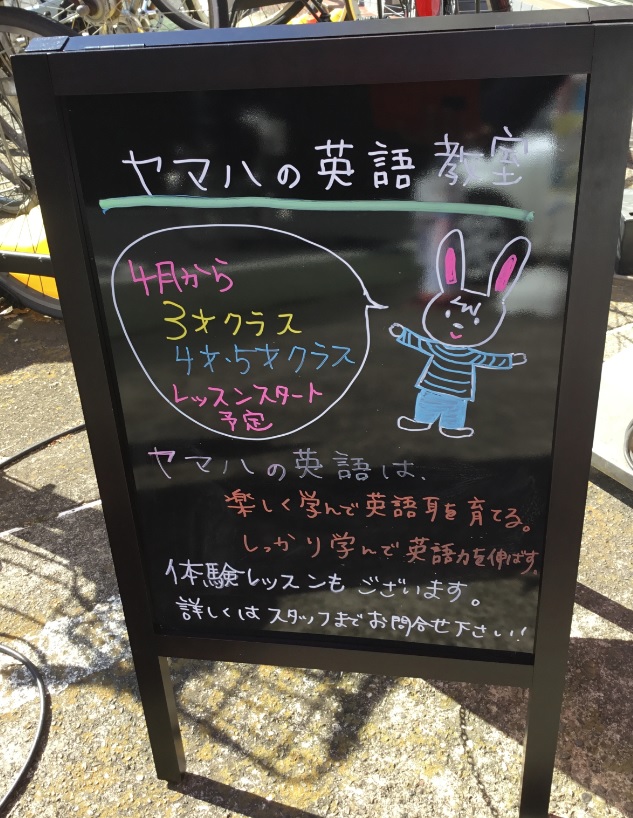 ヤマハの英語教室
4月から
3才クラス
4才、5才クラス
レッスンスタート
予定
ヤマハの英語は、
楽しく学んで英語耳を育てる。
しっかり学んで英語力を伸ばす。
体験レッスンもございます。
詳しくはスタッフまでお問合せ下さい!